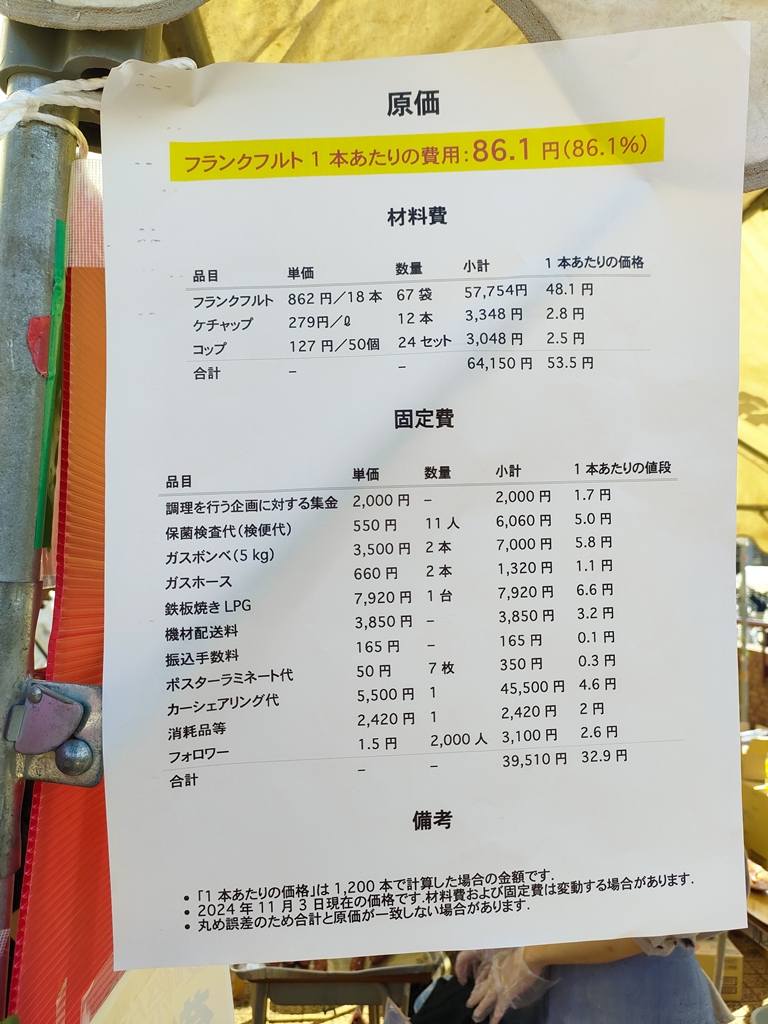 原価
フランクフルト 1 本あたりの費用：86.1 円（86.1%）
材料費
品目 単価 数量 小計 1 本あたりの価格
フランクフルト 862 円／18 本 67 袋 57,754円 48.1 円
ケチャップ 279円／ℓ 12 本 3,348 円 2.8 円
コップ 127 円／50個 24 セット 3,048 円 2.5 円
合計 – – 64,150 円 53.5 円
固定費
品目 単価 数量 小計 1 本あたりの値段
調理を行う企画に対する集金 2,000 円 – 2,000 円 1.7 円
保菌検査代（検便代） 550 円 11 人 6,060 円 5.0 円
ガスボンベ（5 kg） 3,500 円 2 本 7,000 円 5.8 円
ガスホース 660 円 2 本 1,320 円 1.1 円
鉄板焼き LPG 7,920 円 1 台 7,920 円 6.6 円
機材配送料 3,850 円 – 3,850 円 3.2 円
振込手数料 165 円 – 165 円 0.1 円
ポスターラミネート代 50 円 7 枚 350 円 0.3 円
カーシェアリング代 5,500 円 1 45,500 円 4.6 円
消耗品等 2,420 円 1 2,420 円 2 円
フォロワー 1.5 円 2,000 人 3,100 円 2.6 円
合計 – – 39,510 円 32.9 円
備考
• 「1 本あたりの価格」は 1,200 本で計算した場合の金額です.
• 2024 年 11 月 3 日現在の価格です.材料費および固定費は変動する場合があります.
• 丸め誤差のため合計と原価が一致しない場合があります.